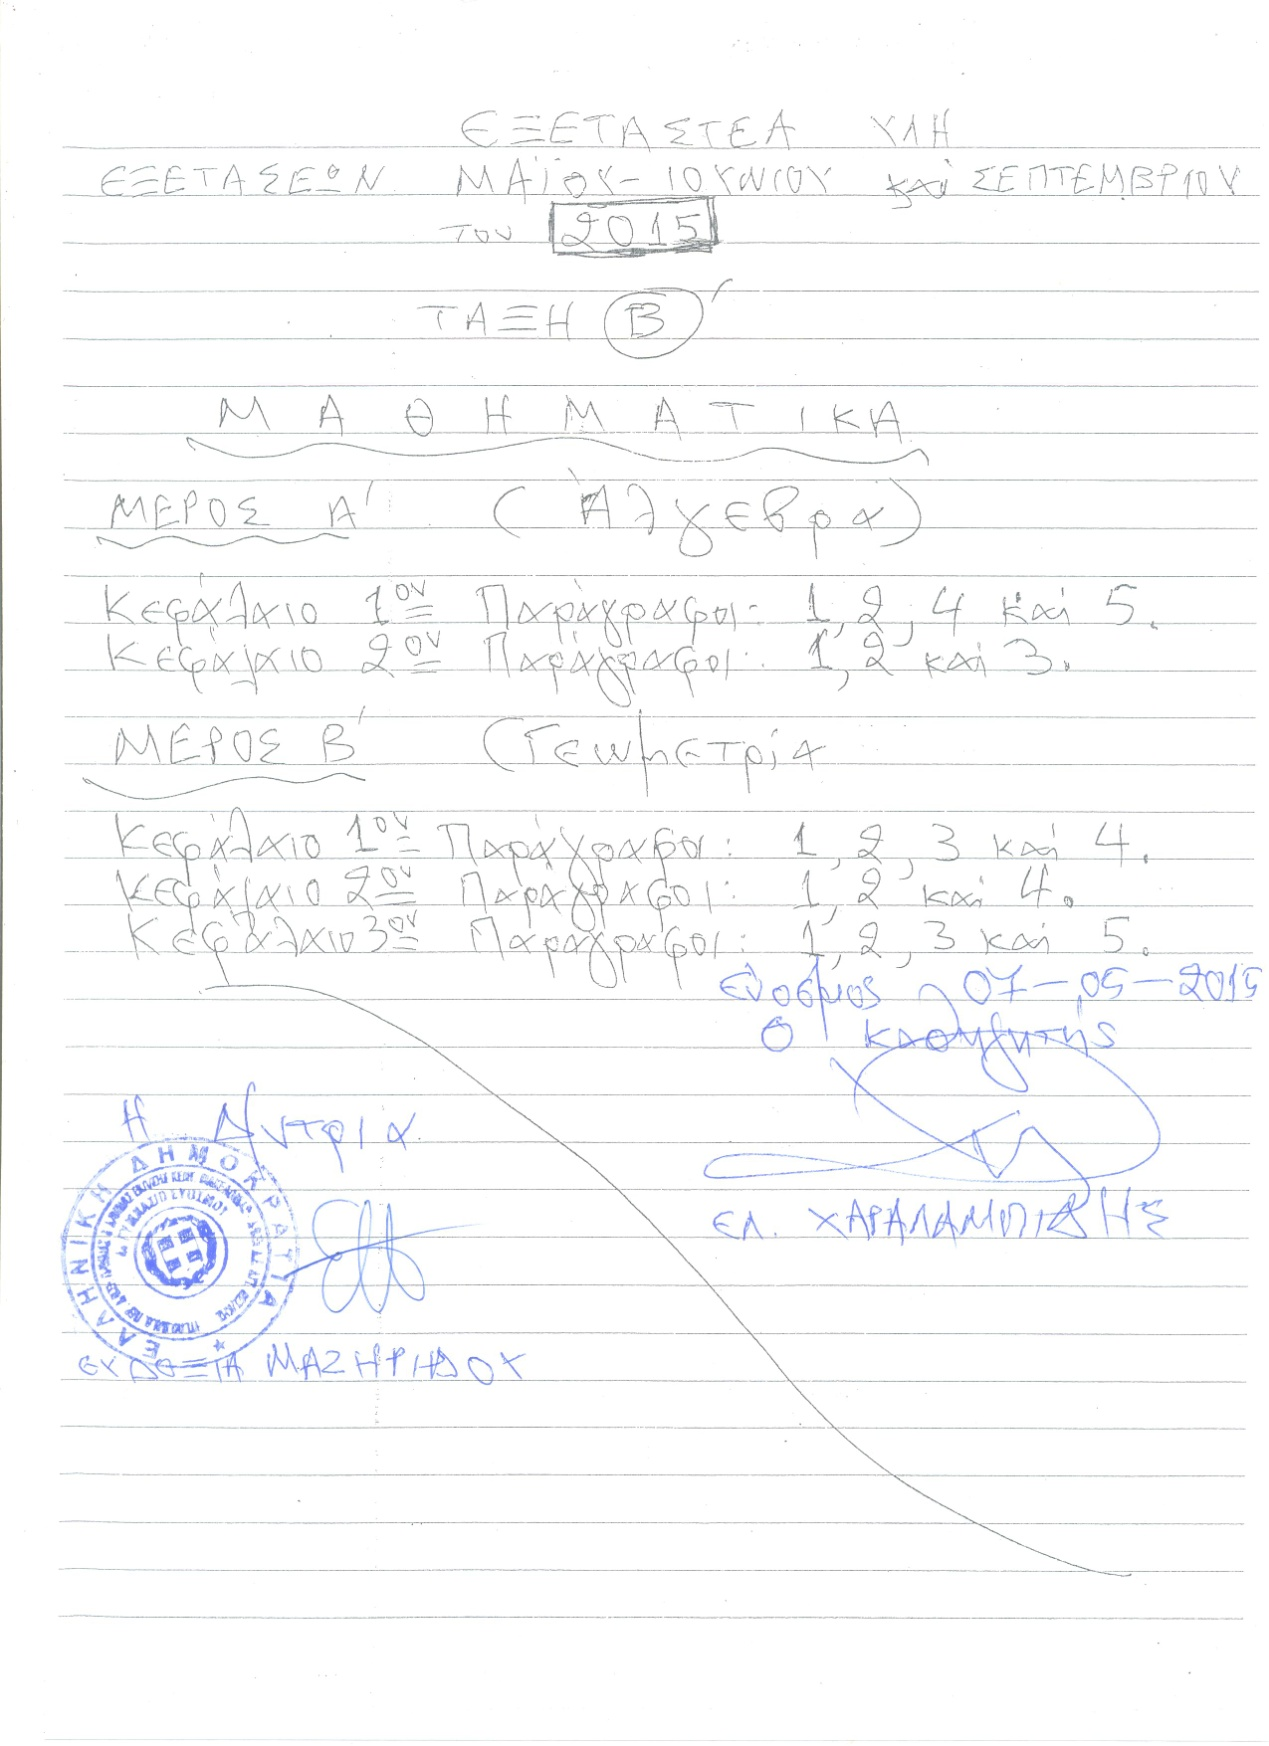 ΕΞΕΤΑΣΤΕΑ ΥΛΗ
ΕΞΕΤΑΣΕΩΝ ΜΑΪΟΥ-ΙΟΥΝΙΟΥ και ΣΕΠΤΕΜΒΡΙΟΥ
του 2015
ΤΑΞΗ Β'
ΜΑΘΗΜΑΤΙΚΑ
ΜΕΡΟΣ Α' (Άλγεβρα)
Κεφάλαιο 1ον Παράγραφοι: 1, 2, 4 και 5.
Κεφάλαιο 2ον Παράγραφοι: 1, 2 και 3.
ΜΕΡΟΣ Β' (Γεωμετρία
Κεφάλαιο 1ον Παράγραφοι: 1, 2, 3 και 4.
Κεφάλαιο 2ον Παράγραφοι: 1, 2 και 4.
Κεφάλαιο 3ον Παράγραφοι: 1, 2, 3 και 5.
Εύοσμος 07-05-2015
Ο Καθηγητής
Η Δ/ντρια
ΕΛ. ΧΑΡΑΛΑΜΠΙΔΗΣ
ΕΛΛΗΝΙΚΗ ΔΗΜΟΚΡΑΤΙΑ
ΓΥΜΝΑΣΙΟ ΕΥΟΣΜΟΥ
ΕΥΔΟΞΙΑ ΜΑΖΗΡΙΔΟΥ